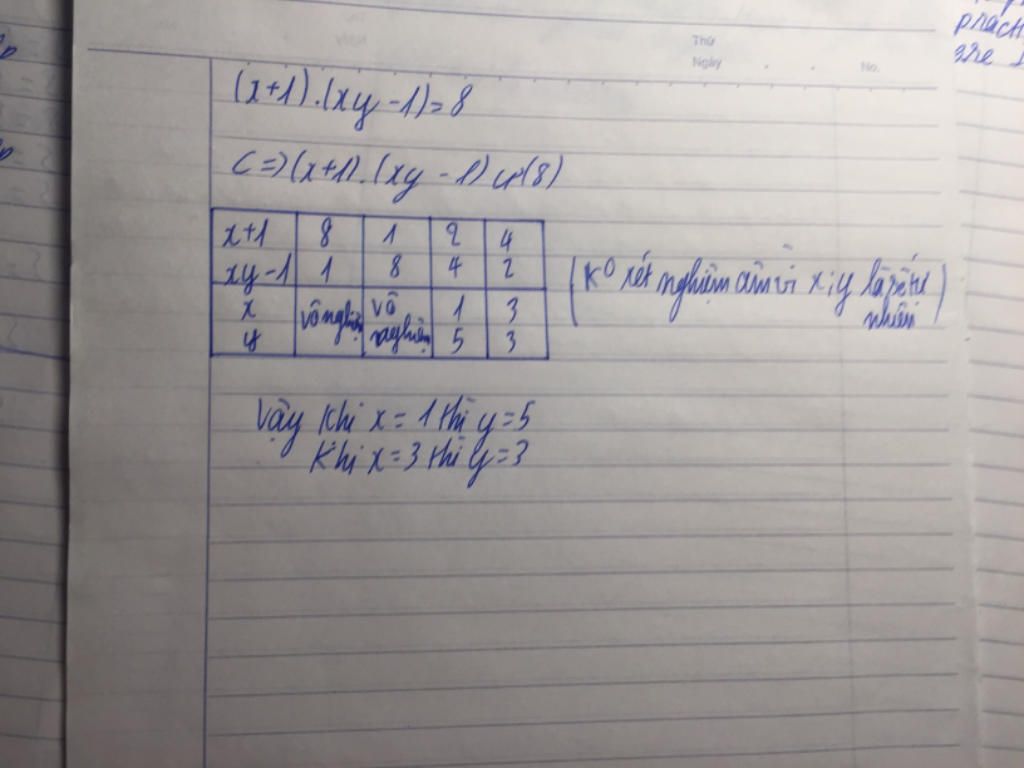 Thứ
Ngày
No.
(x+1).(xy-1)=8
<=>(x+1).(xy-1) Ư(8)
x+1 8 1 2 4
xy-1 1 8 4 2
x vô nghiệm vô nghiệm 1 3
y 5 3
(Kº xét nghiệm âm vì x;y là số tự nhiên)
Vậy khi x=1 thì y=5
Khi x=3 thì y=3